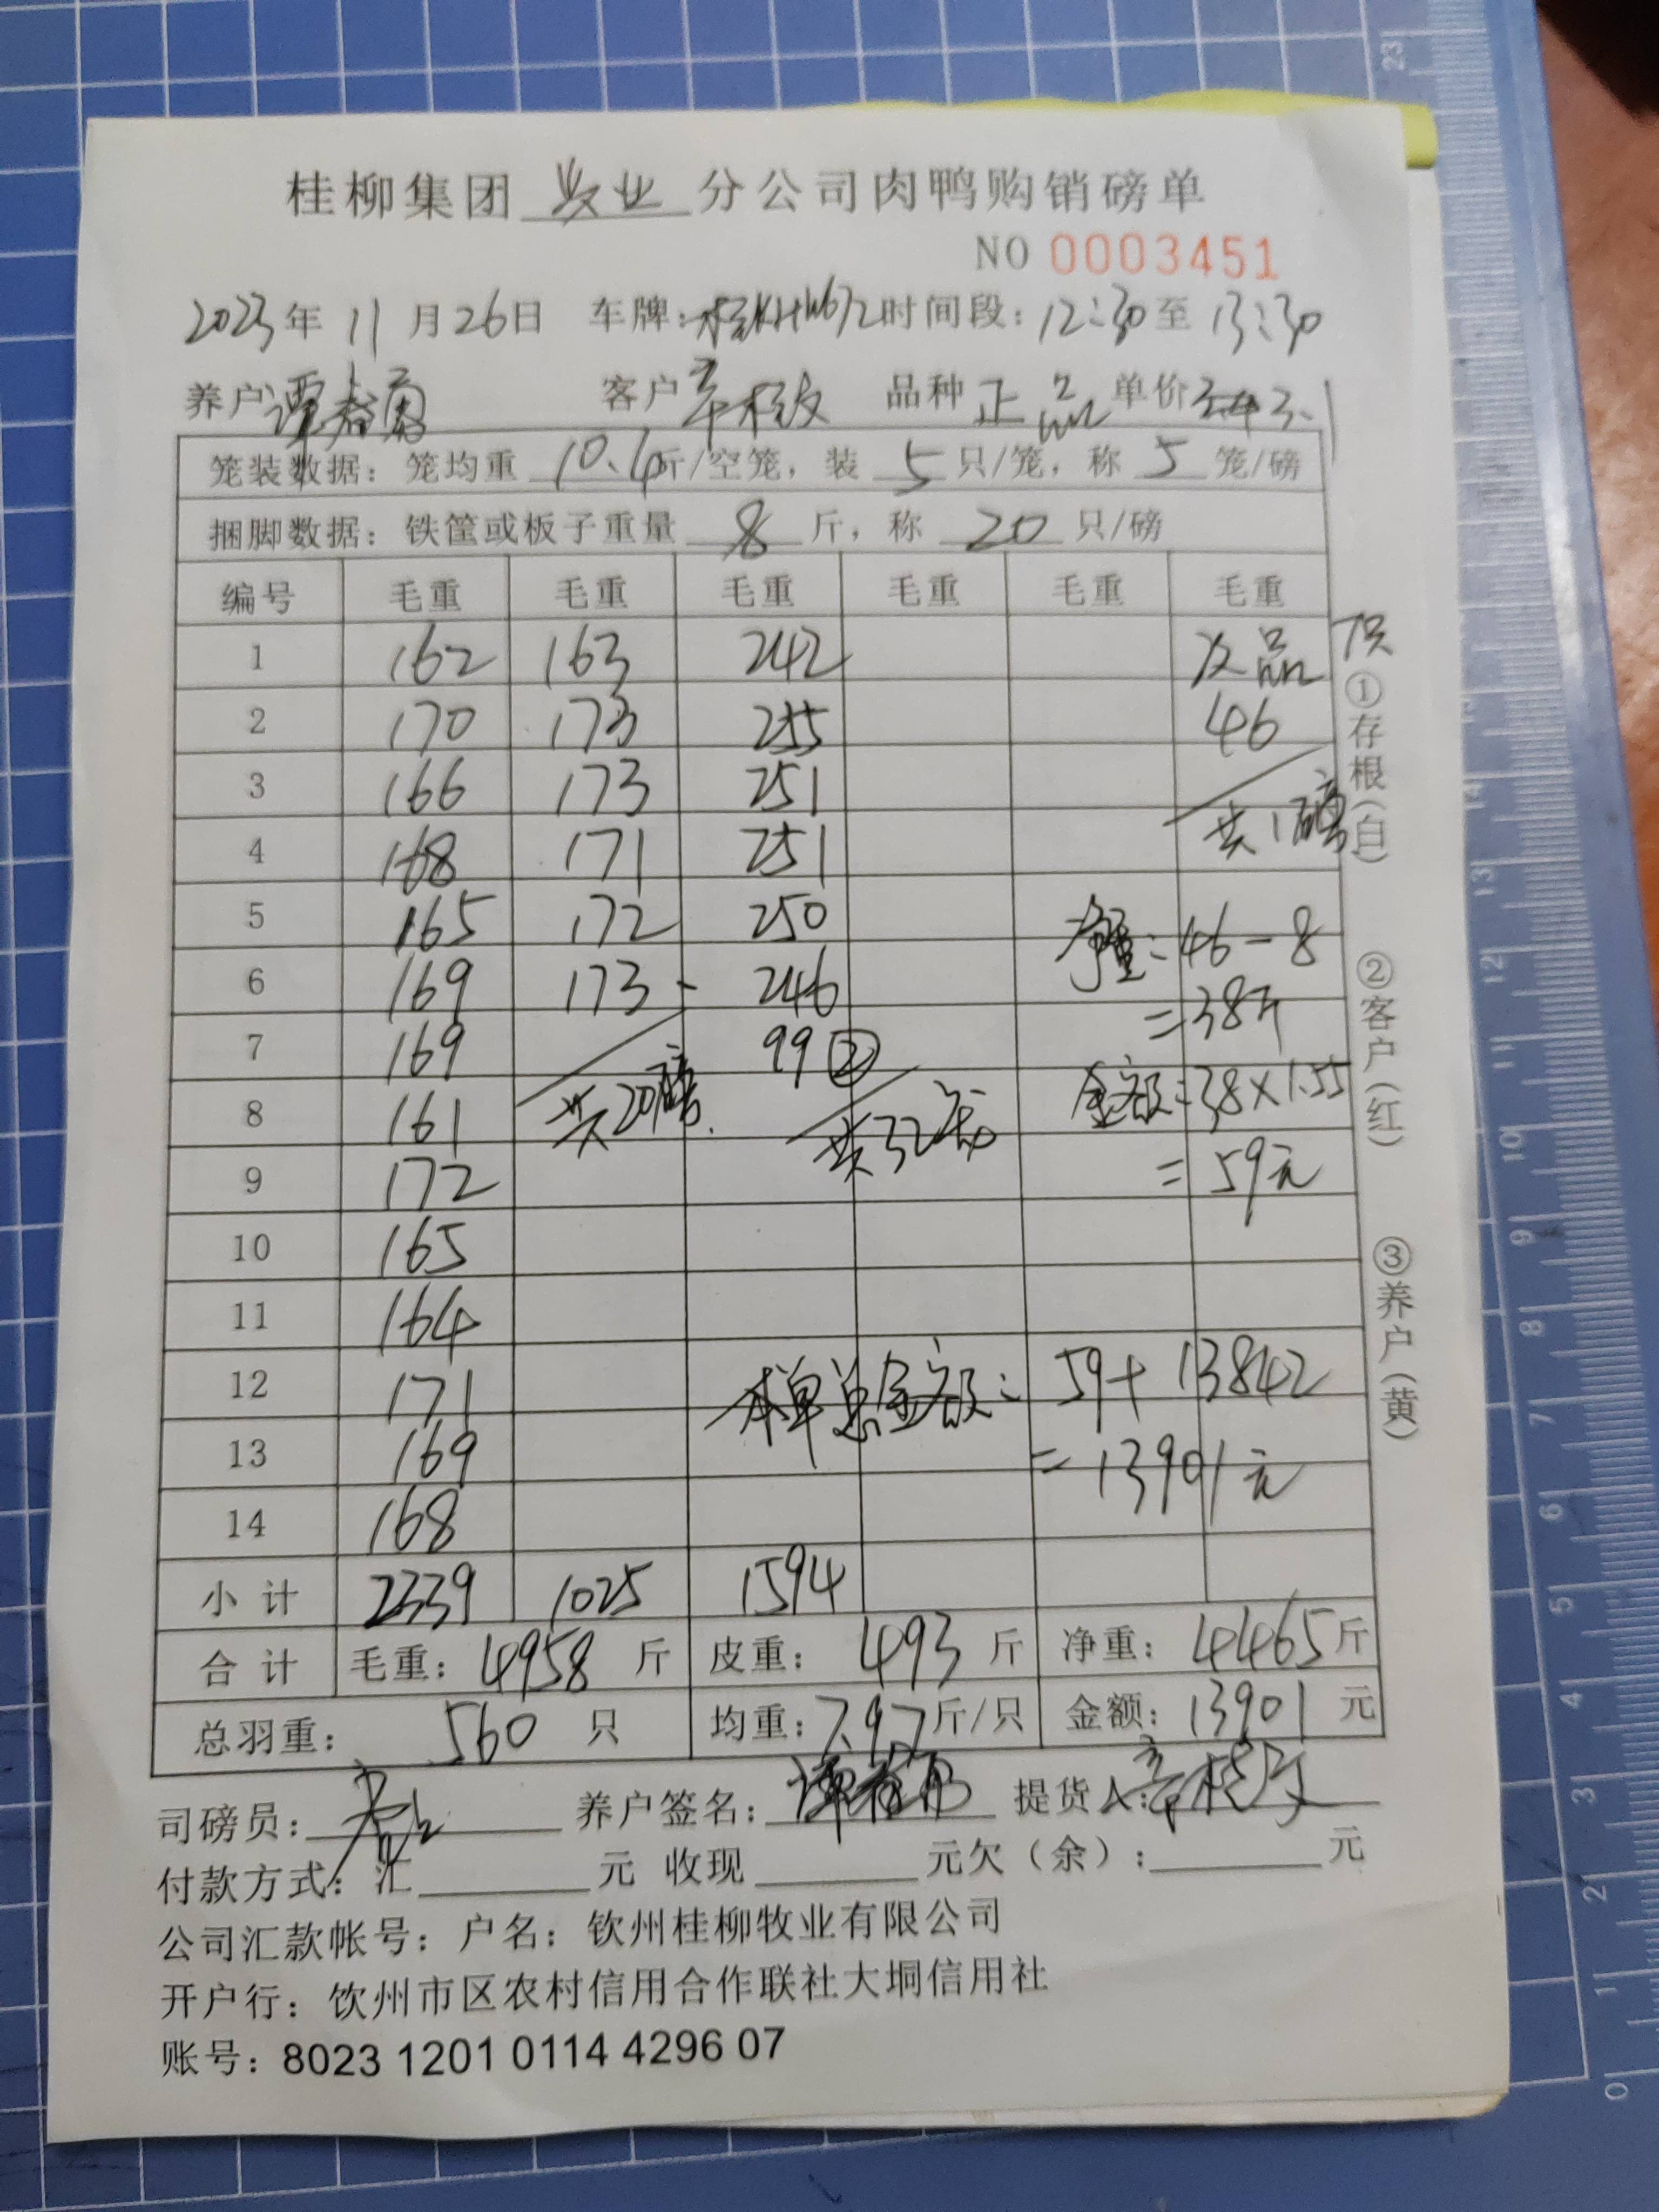 桂柳集团 牧业 分公司肉鸭购销磅单
NO 0003451
2023年 11月26日 车牌: 时间段: 12:30至 13:30
养户 客户 品种 正品 单价 3.1
笼装数据: 笼均重 10.4斤/空笼, 装 5 只/笼, 称 5 笼/磅
捆脚数据: 铁筐或板子重量 8 斤, 称 20 只/磅
编号 毛重 毛重 毛重 毛重 毛重 毛重
1 162 163 242 次品 7只
2 170 173 255 46
3 166 173 251
4 168 171 251 共1磅
5 165 172 250 净重: 46-8
6 169 173 246 =38斤
7 169 99②
8 161 共20磅. 共32笼 金额:38×1.55
9 172 =59元
10 165
11 164
12 171 本单总金额: 59+13842
13 169 =13901元
14 168
小计 2339 1025 1594
合计 毛重: 4958 斤 皮重: 493 斤 净重: 4465斤
总羽重: 560 只 均重:7.97斤/只 金额:13901 元
司磅员: 养户签名: 提货人:
付款方式: 汇 元 收现 元欠（余）: 元
公司汇款帐号: 户名: 钦州桂柳牧业有限公司
开户行: 钦州市区农村信用合作联社大垌信用社
账号: 8023 1201 0114 4296 07
①存根(白)
②客户(红)
③养户(黄)